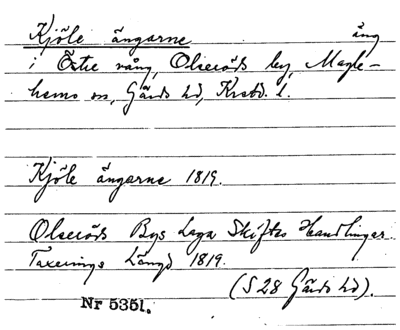 Kjöle ängarne äng
i Östre vång, Olseröds by, Magle-
hems sn, Gärds hd, Krstd. l.
Kjöle ängarne 1819.
Olseröds Bys Laga Skiftes Handlingar
Taxerings Längd 1819.
(S 28 Gärds hd).
Nr 5351.